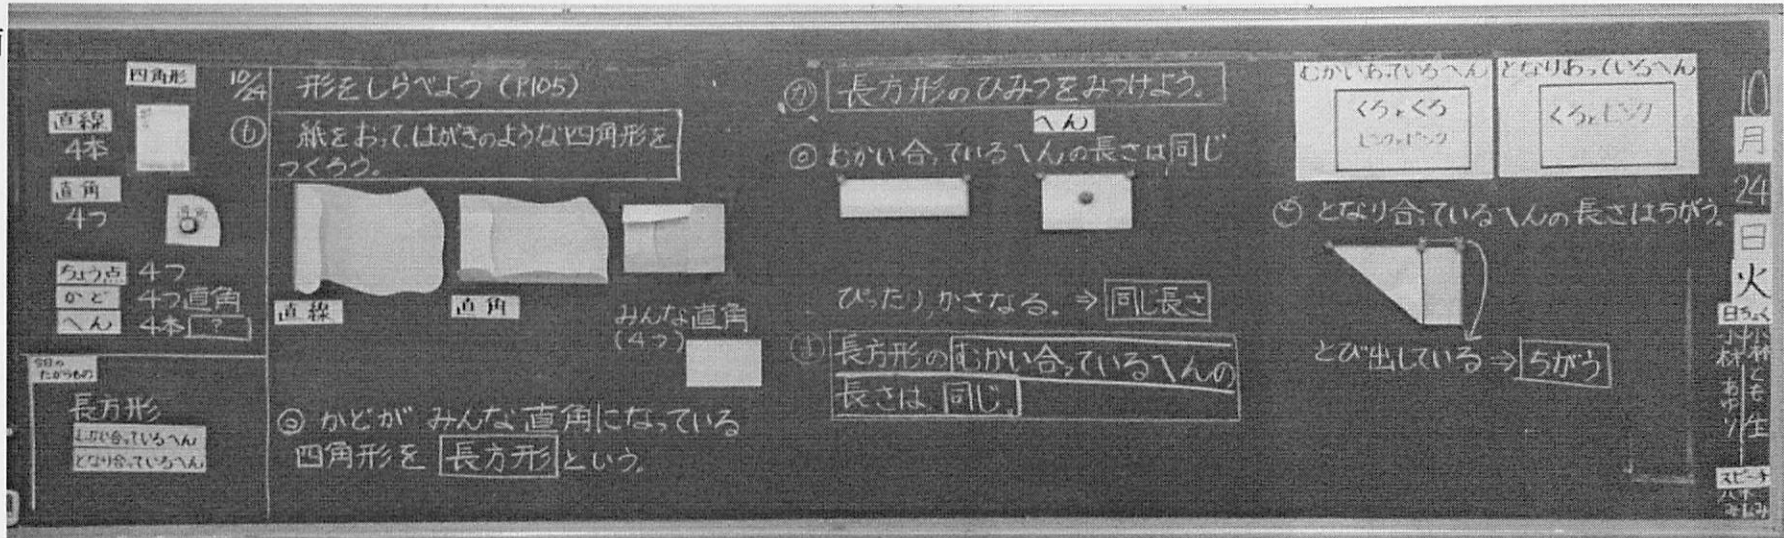 四角形
直線
4本
直角
4つ
ちょう点 4つ
かど 4つ直角
へん 4本 ?
今日の
たからもの
長方形
むかい合っているへん
となり合っているへん
10/24 形をしらべよう (P.105)
も 紙をおってはがきのような四角形を
つくろう。
直線
直角
みんな直角
(4つ)
◎ かどが みんな直角になっている
四角形を 長方形 という。
か 長方形のひみつをみつけよう。
へん
◎ むかい合っているへんの長さは同じ
ぴったり,かさなる。 ⇒ 同じ長さ
ま 長方形のむかい合っているへんの
長さは 同じ。
むかいあっているへん
くろとくろ
ピンクとピンク
となりあっているへん
くろとピンク
となり合っているへんの長さはちがう。
とび出している ⇒ ちがう
10
月
24
日
火
日ちょく
スピーチ